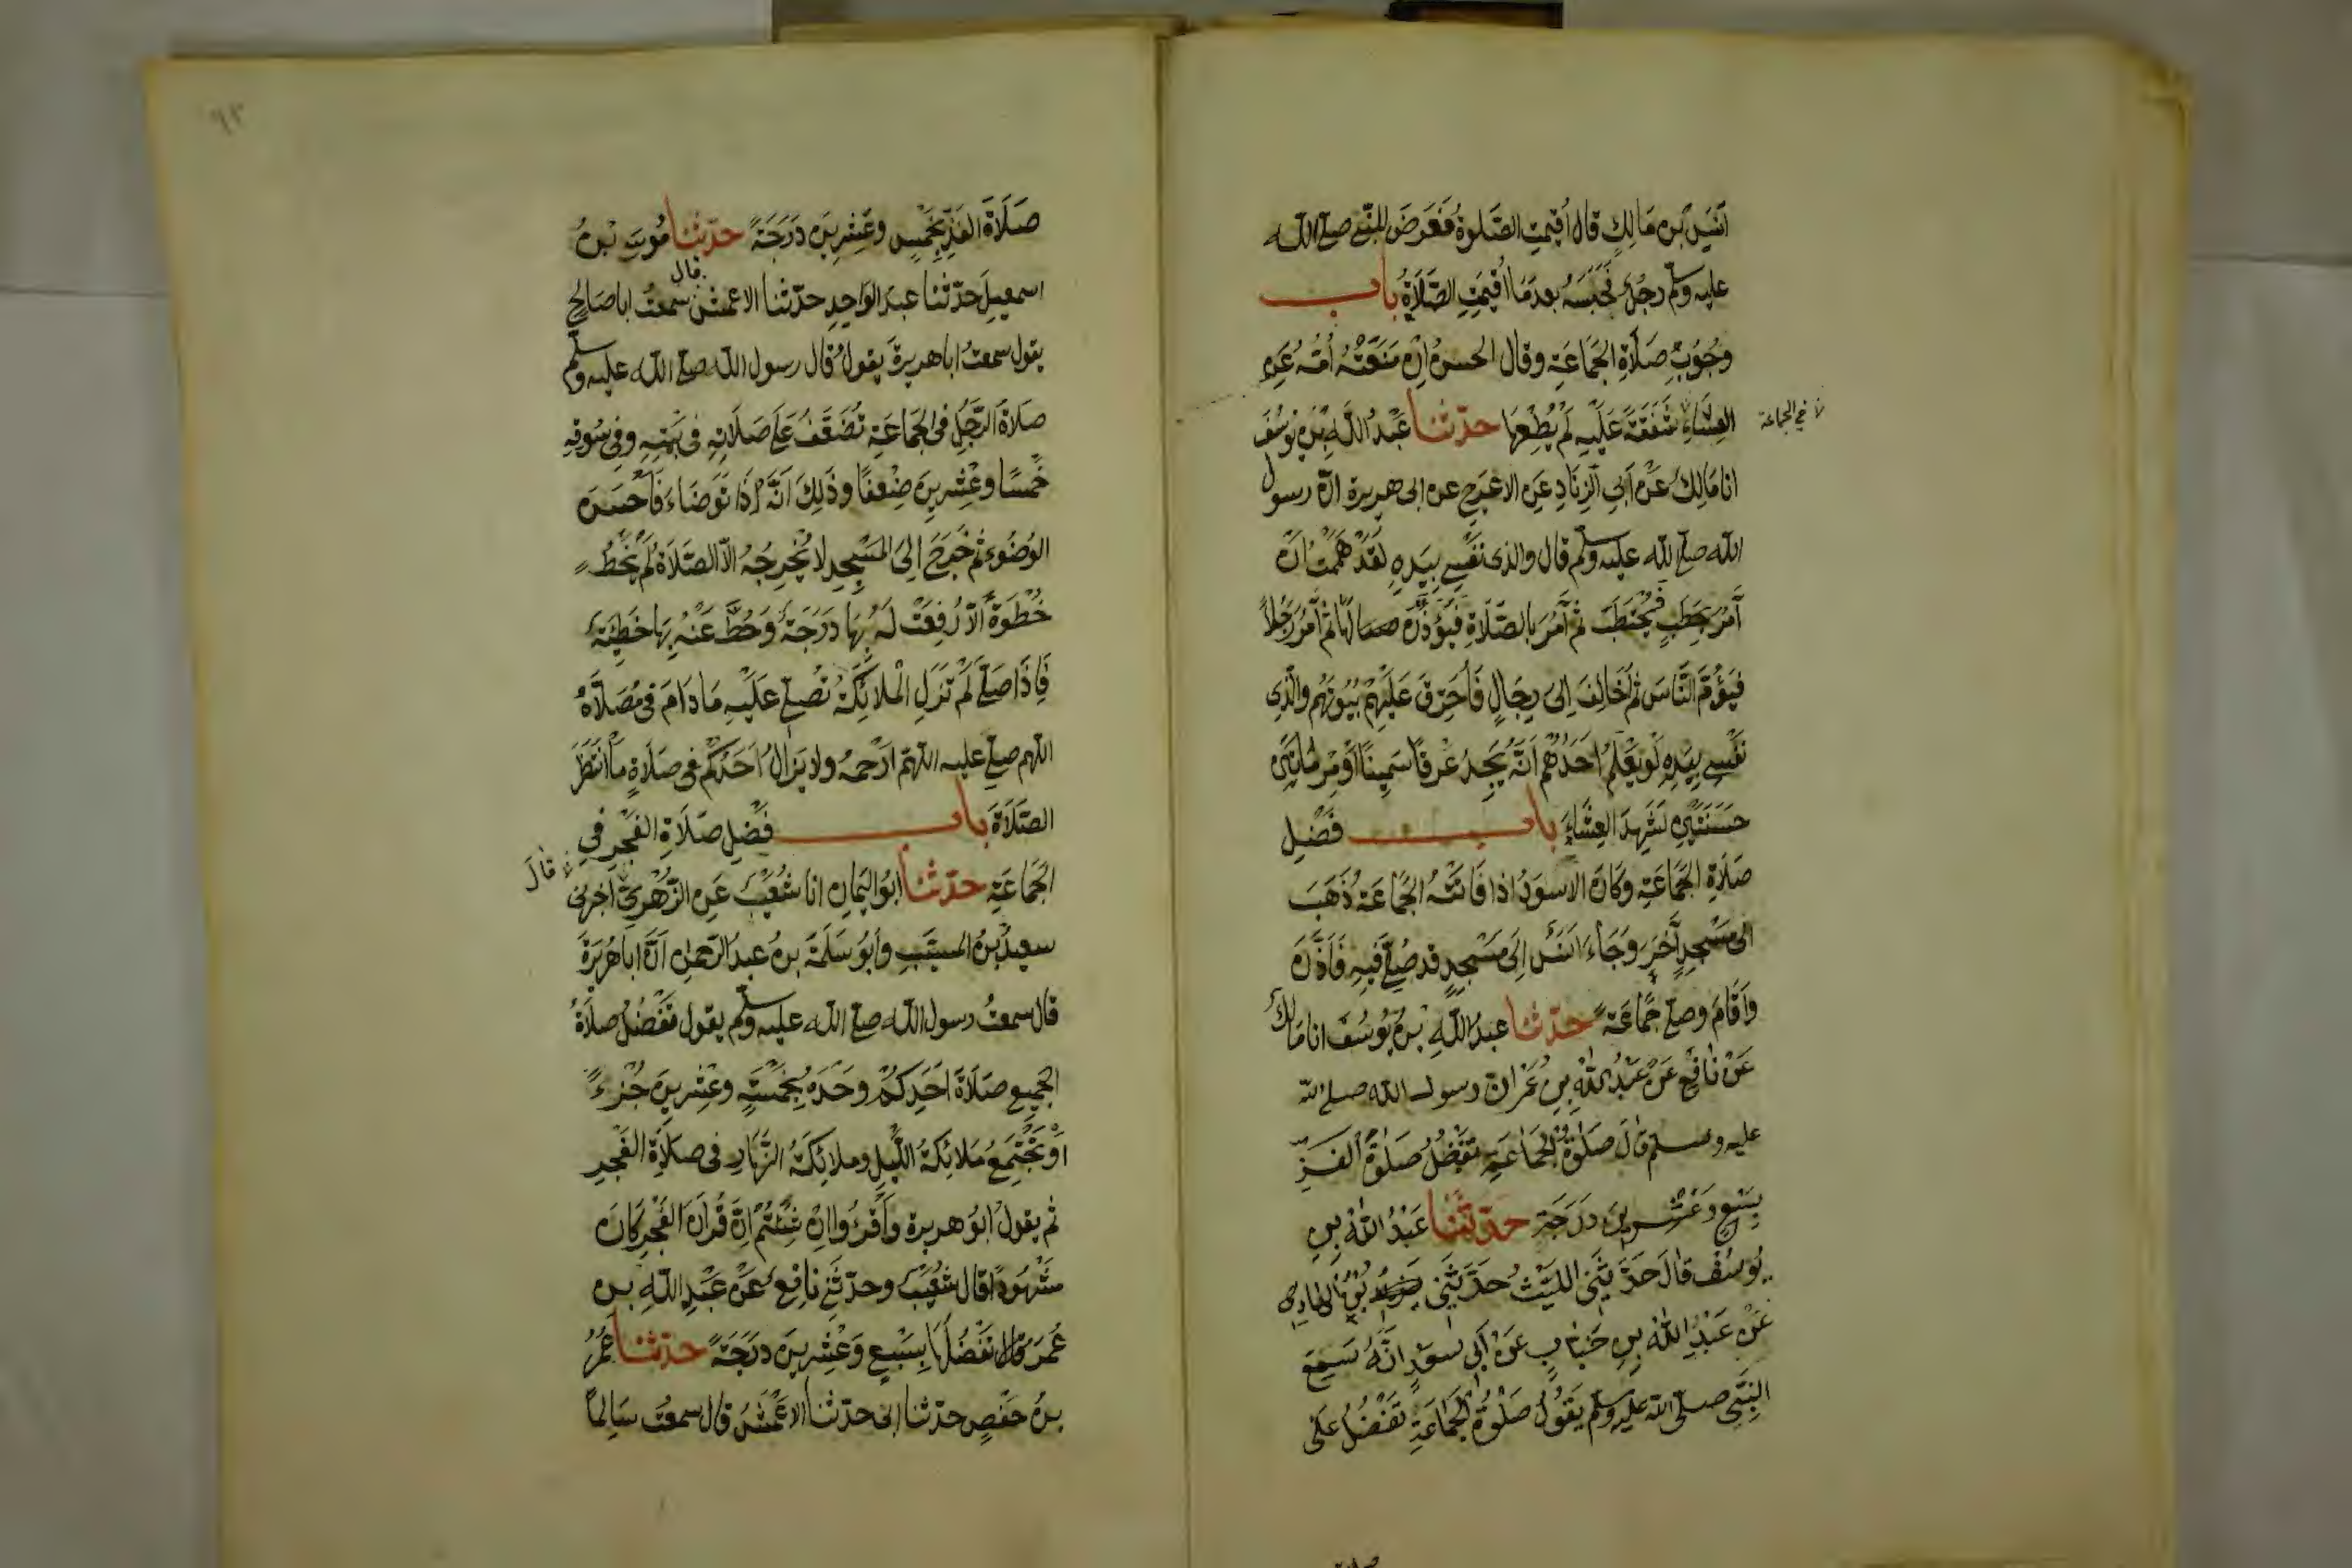 أنس بن مالك قال أقيمت الصلوة فعرض للنبي صلى الله
عليه وسلم رجل فحبسه بعدما أقيمت الصلاة باب
وجوب صلاة الجماعة وقال الحسن إن منعته أمه عن
العشاء شفقة عليه لم يطعها حدثنا عبد الله بن يوسف
في الجماعة
انا مالك عن أبي الزناد عن الاعرج عن ابى هريرة ان رسول
الله صلى الله عليه وسلم قال والذى نفسي بيده لقد هممت ان
آمر بحطب فيحتطب ثم آمر بالصلاة فيؤذن لها ثم آمر رجلاً
فيؤم الناس ثم أخالف إلى رجال فأحرق عليهم بيوتهم والذى
نفسي بيده لو يعلم أحدهم أنه يجد عرقا سمينا أو مرماتين
حسنتين لشهد العشاء باب فضل
صلاة الجماعة وكان الاسود اذا فاتته الجماعة ذهب
الى مسجد آخر وجاء انس إلى مسجد قد صلي فيه فأذن
وأقام وصلى جماعة حدثنا عبد الله بن يوسف انا مالك
عن نافع عن عبد الله بن عمر ان رسول الله صلى الله
عليه وسلم قال صلوة الجماعة تفضل صلوة الفذ
بسبع وعشرين درجة حدثنا عبد الله بن
يوسف قال حدثني الليث حدثني بن الهادى
عن عبد الله بن خباب عن أبي سعيد انه سمع
النبي صلى الله عليه وسلم يقول صلوة الجماعة تفضل على
٩٢
صلاة الفذ بخمس وعشرين درجة حدثنا موسى بن
اسمعيل حدثنا عبد الواحد حدثنا الاعمش قال سمعت ابا صالح
يقول سمعت ابا هريرة يقول قال رسول الله صلى الله عليه وسلم
صلاة الرجل في الجماعة تضعف على صلاته فى بيته وفي سوقه
خمسا وعشرين ضعفا وذلك انه إذا توضاء فأحسن
الوضوء ثم خرج إلى المسجد لا يخرجه الا الصلاة لم يخط
خطوة الا رفعت له بها درجة وحط عنه بها خطيئة
فإذا صلى لم تزل الملائكة تصلي عليه ما دام فى مصلاه
اللهم صل عليه اللهم ارحمه ولا يزال احدكم في صلاة ما انتظر
الصلاة باب فضل صلاة الفجر في
الجماعة حدثنا ابو اليمان انا شعيب عن الزهري اخبرنى
قال
سعيد بن المسيب وأبو سلمة بن عبد الرحمن ان ابا هريرة
قال سمعت رسول الله صلى الله عليه وسلم يقول تفضل صلاة
الجميع صلاة أحدكم وحده بخمسة وعشرين جزءً
وتجتمع ملائكة الليل وملائكة النهار فى صلاة الفجر
ثم يقول ابو هريرة وأقرءوا ان شئتم ان قران الفجر كان
مشهودا قال شعيب وحدثني نافع عن عبد الله بن
عمر قال تفضلها بسبع وعشرين درجة حدثنا عمر
بن حفص حدثنا ابى حدثنا الاعمش قال سمعت سالما